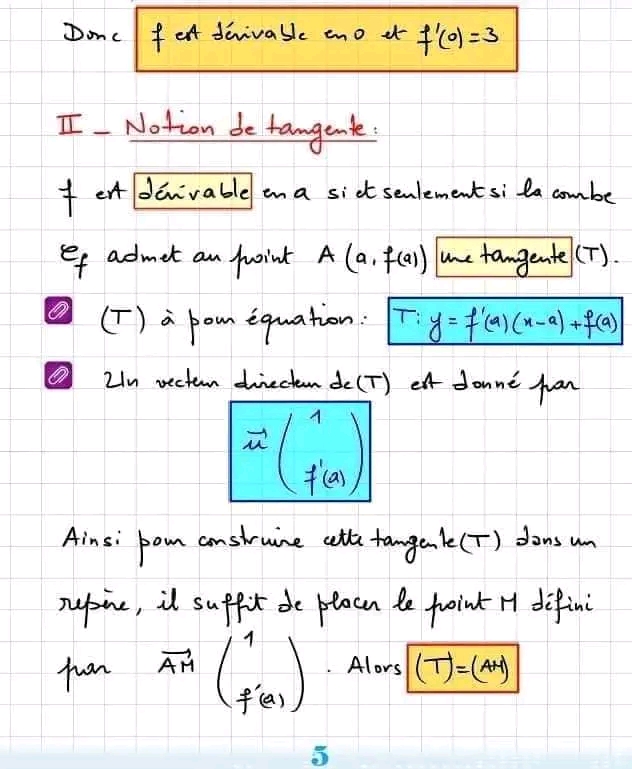 Donc f est dérivable en 0 et f'(0)=3
II - Notion de tangente:
f est dérivable en a si et seulement si la courbe
Cf admet au point A (a, f(a)) une tangente (T).
(T) à pour équation: T: y = f'(a)(x-a)+f(a)
Un vecteur directeur de (T) est donné par
u⃗ (1
f'(a))
Ainsi pour construire cette tangente (T) dans un
repère, il suffit de placer le point M défini
par AM⃗ (1
f'(a)). Alors (T)=(AM)
5